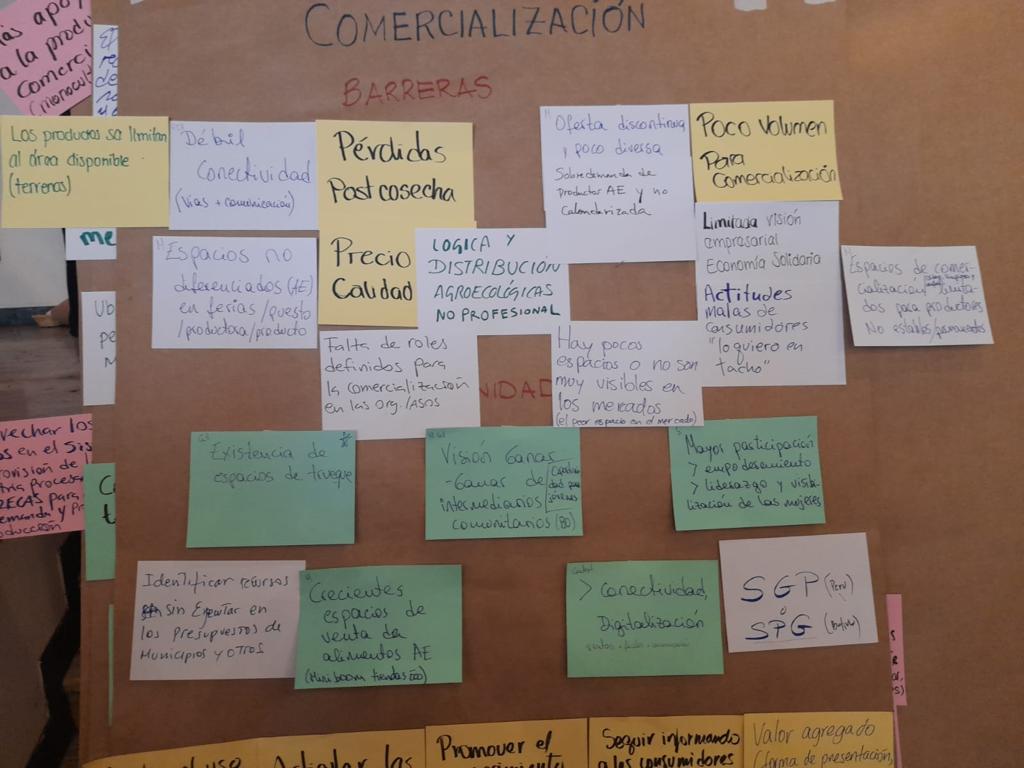 COMERCIALIZACIÓN
BARRERAS
Los productos se limitan
al área disponible
(terrenos)
Débil
Conectividad
(vías + comunicación)
Pérdidas
Postcosecha
Oferta discontinua
y poco diversa
Sobredemanda de
productos AE y no
Calendarizada
Poco Volumen
Para
Comercialización
Espacios no
diferenciados (AE)
en ferias/puesto
/productora/producto
Precio
Calidad
LOGICA Y
DISTRIBUCIÓN
AGROECOLÓGICAS
NO PROFESIONAL
Limitada visión
empresarial
Economía Solidaria
Actitudes
malas de
consumidores
"lo quiero en
tacho"
Espacios de comer-
cialización
dos para productores
No estables/permanentes
Falta de roles
definidos para
la comercialización
en las Org./ASOS
Hay pocos
espacios o no son
muy visibles en
los mercados
(el peor espacio en el mercado)
NIDAD
Existencia de
espacios de trueque
Visión Ganar
-Ganar de
intermediarios
comunitarios (BO)
Mayor participación
> empoderamiento
> liderazgo y visibi-
lización de las mujeres
Identificar recursos
sin Ejecutar en
los Presupuestos de
Municipios y OTROS
Crecientes
espacios de
venta de
alimentos AE
(Mini boom tiendas eco)
> Conectividad,
Digitalización
SGP (Perú)
o
SPG (Bolivia)
las apoy
a la produ
comerci
(monocul
me
vechar los
os en el Sis
rovisión de
tina procesa
EGAS para
emanda y Pr
oducción
Promover el
Seguir informando
a los consumidores
Valor agregado
(forma de presentación,